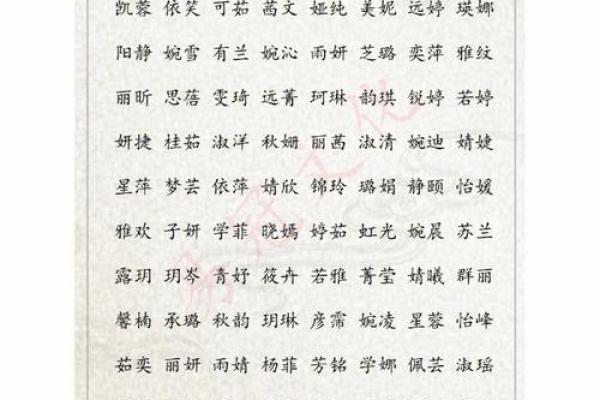 凯蓉 依笑 可茹 茜文 娅纯 美妮 远婷 瑛娜
阳静 婉雪 有兰 婉沁 雨妍 芝璐 奕萍 雅纹
丽昕 思蓓 雯琦 远菁 珂琳 韵琪 锐婷 若婷
妍捷 桂茹 淑洋 秋姗 丽茜 淑清 婉迪 婧婕
星萍 梦芸 依萍 婧欣 锦玲 璐娟 静颐 怡媛
雅欢 子妍 学菲 晓嫣 婷茹 虹光 婉晨 苏兰
露玥 玥岑 青妤 筱卉 若雅 菁莹 婧曦 群丽
馨楠 承璐 秋韵 玥琳 彦霈 婉凌 星蓉 怡峰
茹奕 丽妍 雨婧 杨菲 芳铭 学娜 佩芸 淑瑶
易冠文化